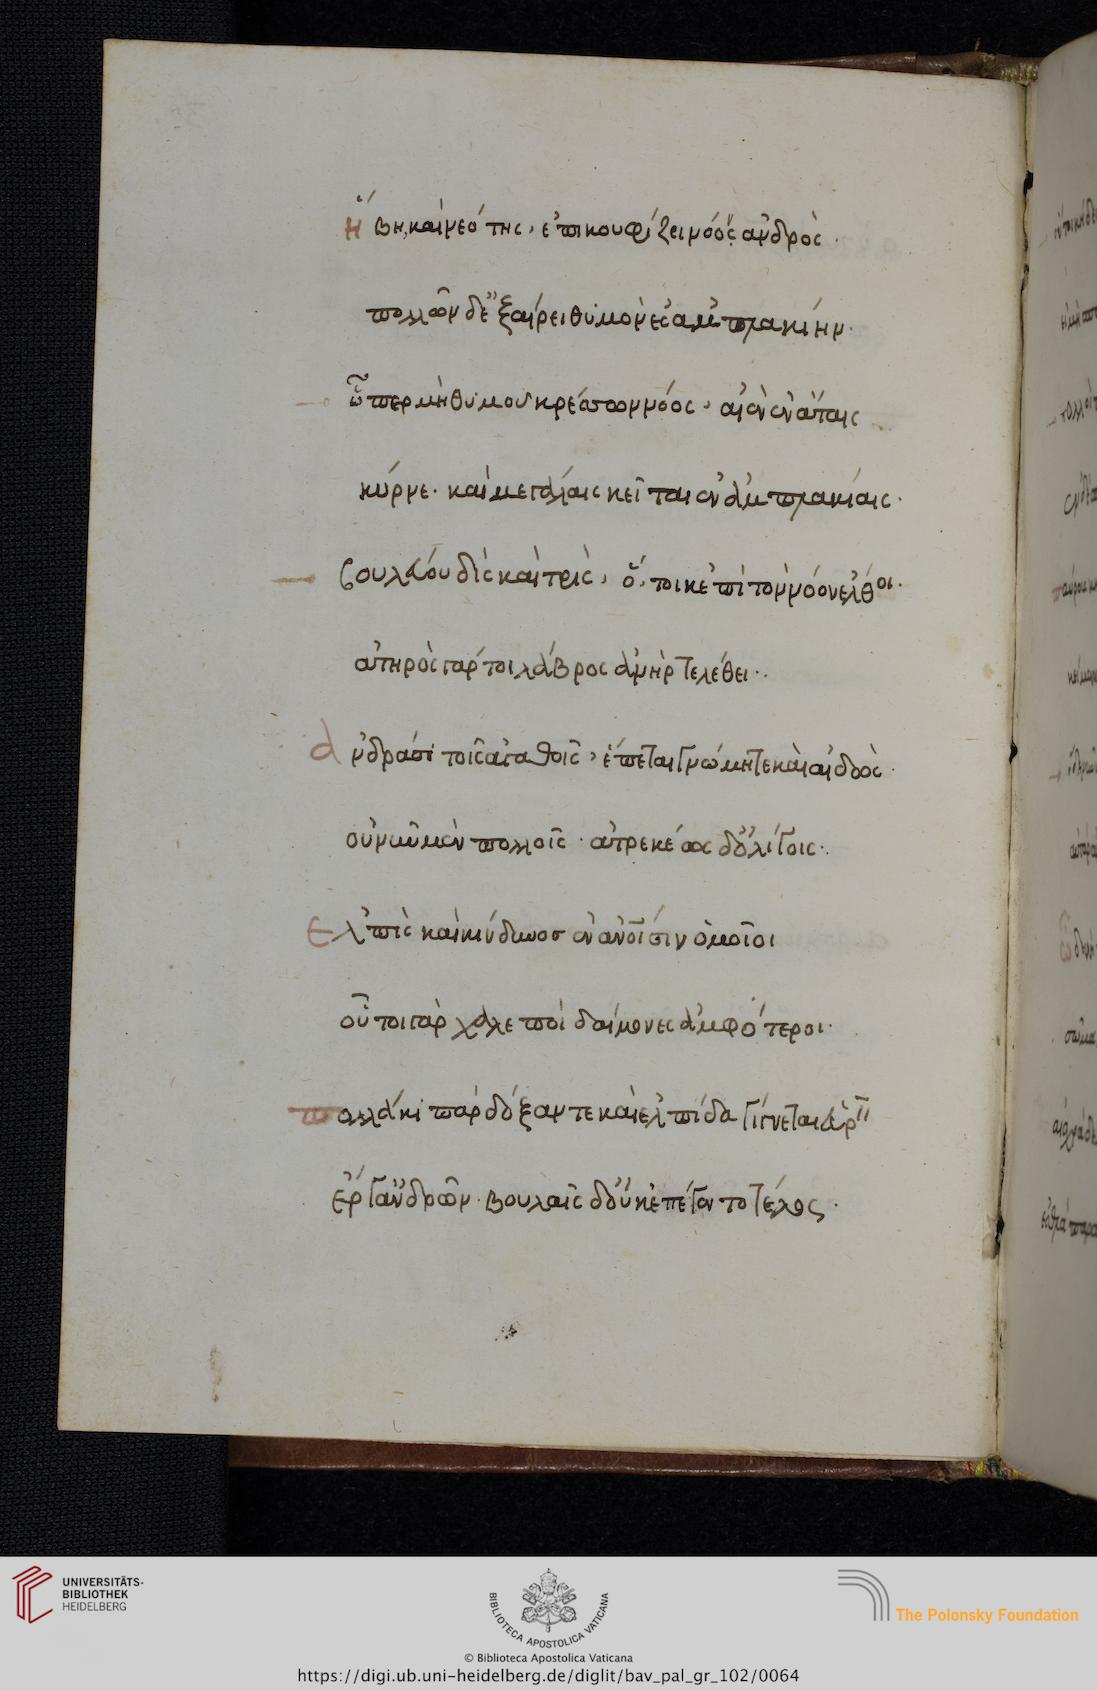 ἥβη καὶ νεότης, ἐπικουφίζει νόον ἀνδρὸς·
πολλῶν δ' ἐξαίρει θυμὸν ἐς ἀμπλακίην·
ὧπερ μὴ θυμοῦ κρέσσων νόος, αἰὲν ἐν ἄταις
κύρνε· καὶ μεγάλαις κεῖται ἐν ἀμπλακίαις·
βουλεύου δὶς καὶ τρὶς, ὅ, τοι κ' ἐπὶ τὸν νόον ἔλθοι·
ἀτηρὸς γάρ τοι λάβρος ἀνὴρ τελέθει·
ἀνδράσι τοῖς ἀγαθοῖς, ἕπεται γνώμη τε καὶ αἰδὼς·
οἳ νῦν μὲν πολλοῖς ἀτρεκέως δ' ὀλίγοις·
Ἐλπὶς καὶ κίνδυνοσ ἐν ἀνοῖσιν ὁμοῖοι
οὗτοι γὰρ χαλεποὶ δαίμονες ἀμφότεροι·
πολλάκι παρ δόξαν τε καὶ ἐλπίδα γίγνεται
ἔργ' ἀνδρῶν· βουλαῖς δ' οὐκ ἐπέγεν το τέλος·
UNIVERSITÄTS-
BIBLIOTHEK
HEIDELBERG
BIBLIOTECA APOSTOLICA VATICANA
The Polonsky Foundation
© Biblioteca Apostolica Vaticana
https://digi.ub.uni-heidelberg.de/diglit/bav_pal_gr_102/0064